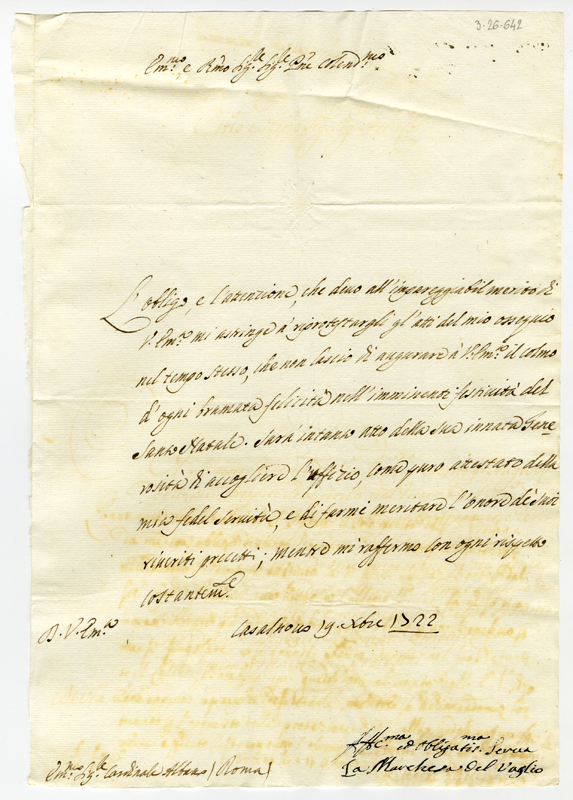 3-26-642
Em.mo e Rmo Sig.re Sig.re Pne Colend.mo
L'obligo, e l'attenzione, che devo all'impareggiabil merito di
V. Em.a mi astringe à riprotestargli gl'atti del mio ossequio
nel tempo stesso, che non lascio di augurare à V. Em.a il colmo
d'ogni bramata felicità nell'imminenti festività del
Santo Natale. Sarà intanto atto della sua innata Gene
rosità di accogliere l'uffizio, come puro attestato della
mia fedel servitù, e di farmi meritare l'onore de suoi
riveriti precetti; mentre mi raffermo con ogni rispetto
costantem.e
D. V. Em.a Casalnovo 19. Xbre 1722
Aff.ma ed Obligatis.ma Serva
La Marchesa del Vaglio
Em.mo Sig.re Cardinale Albano (Roma)